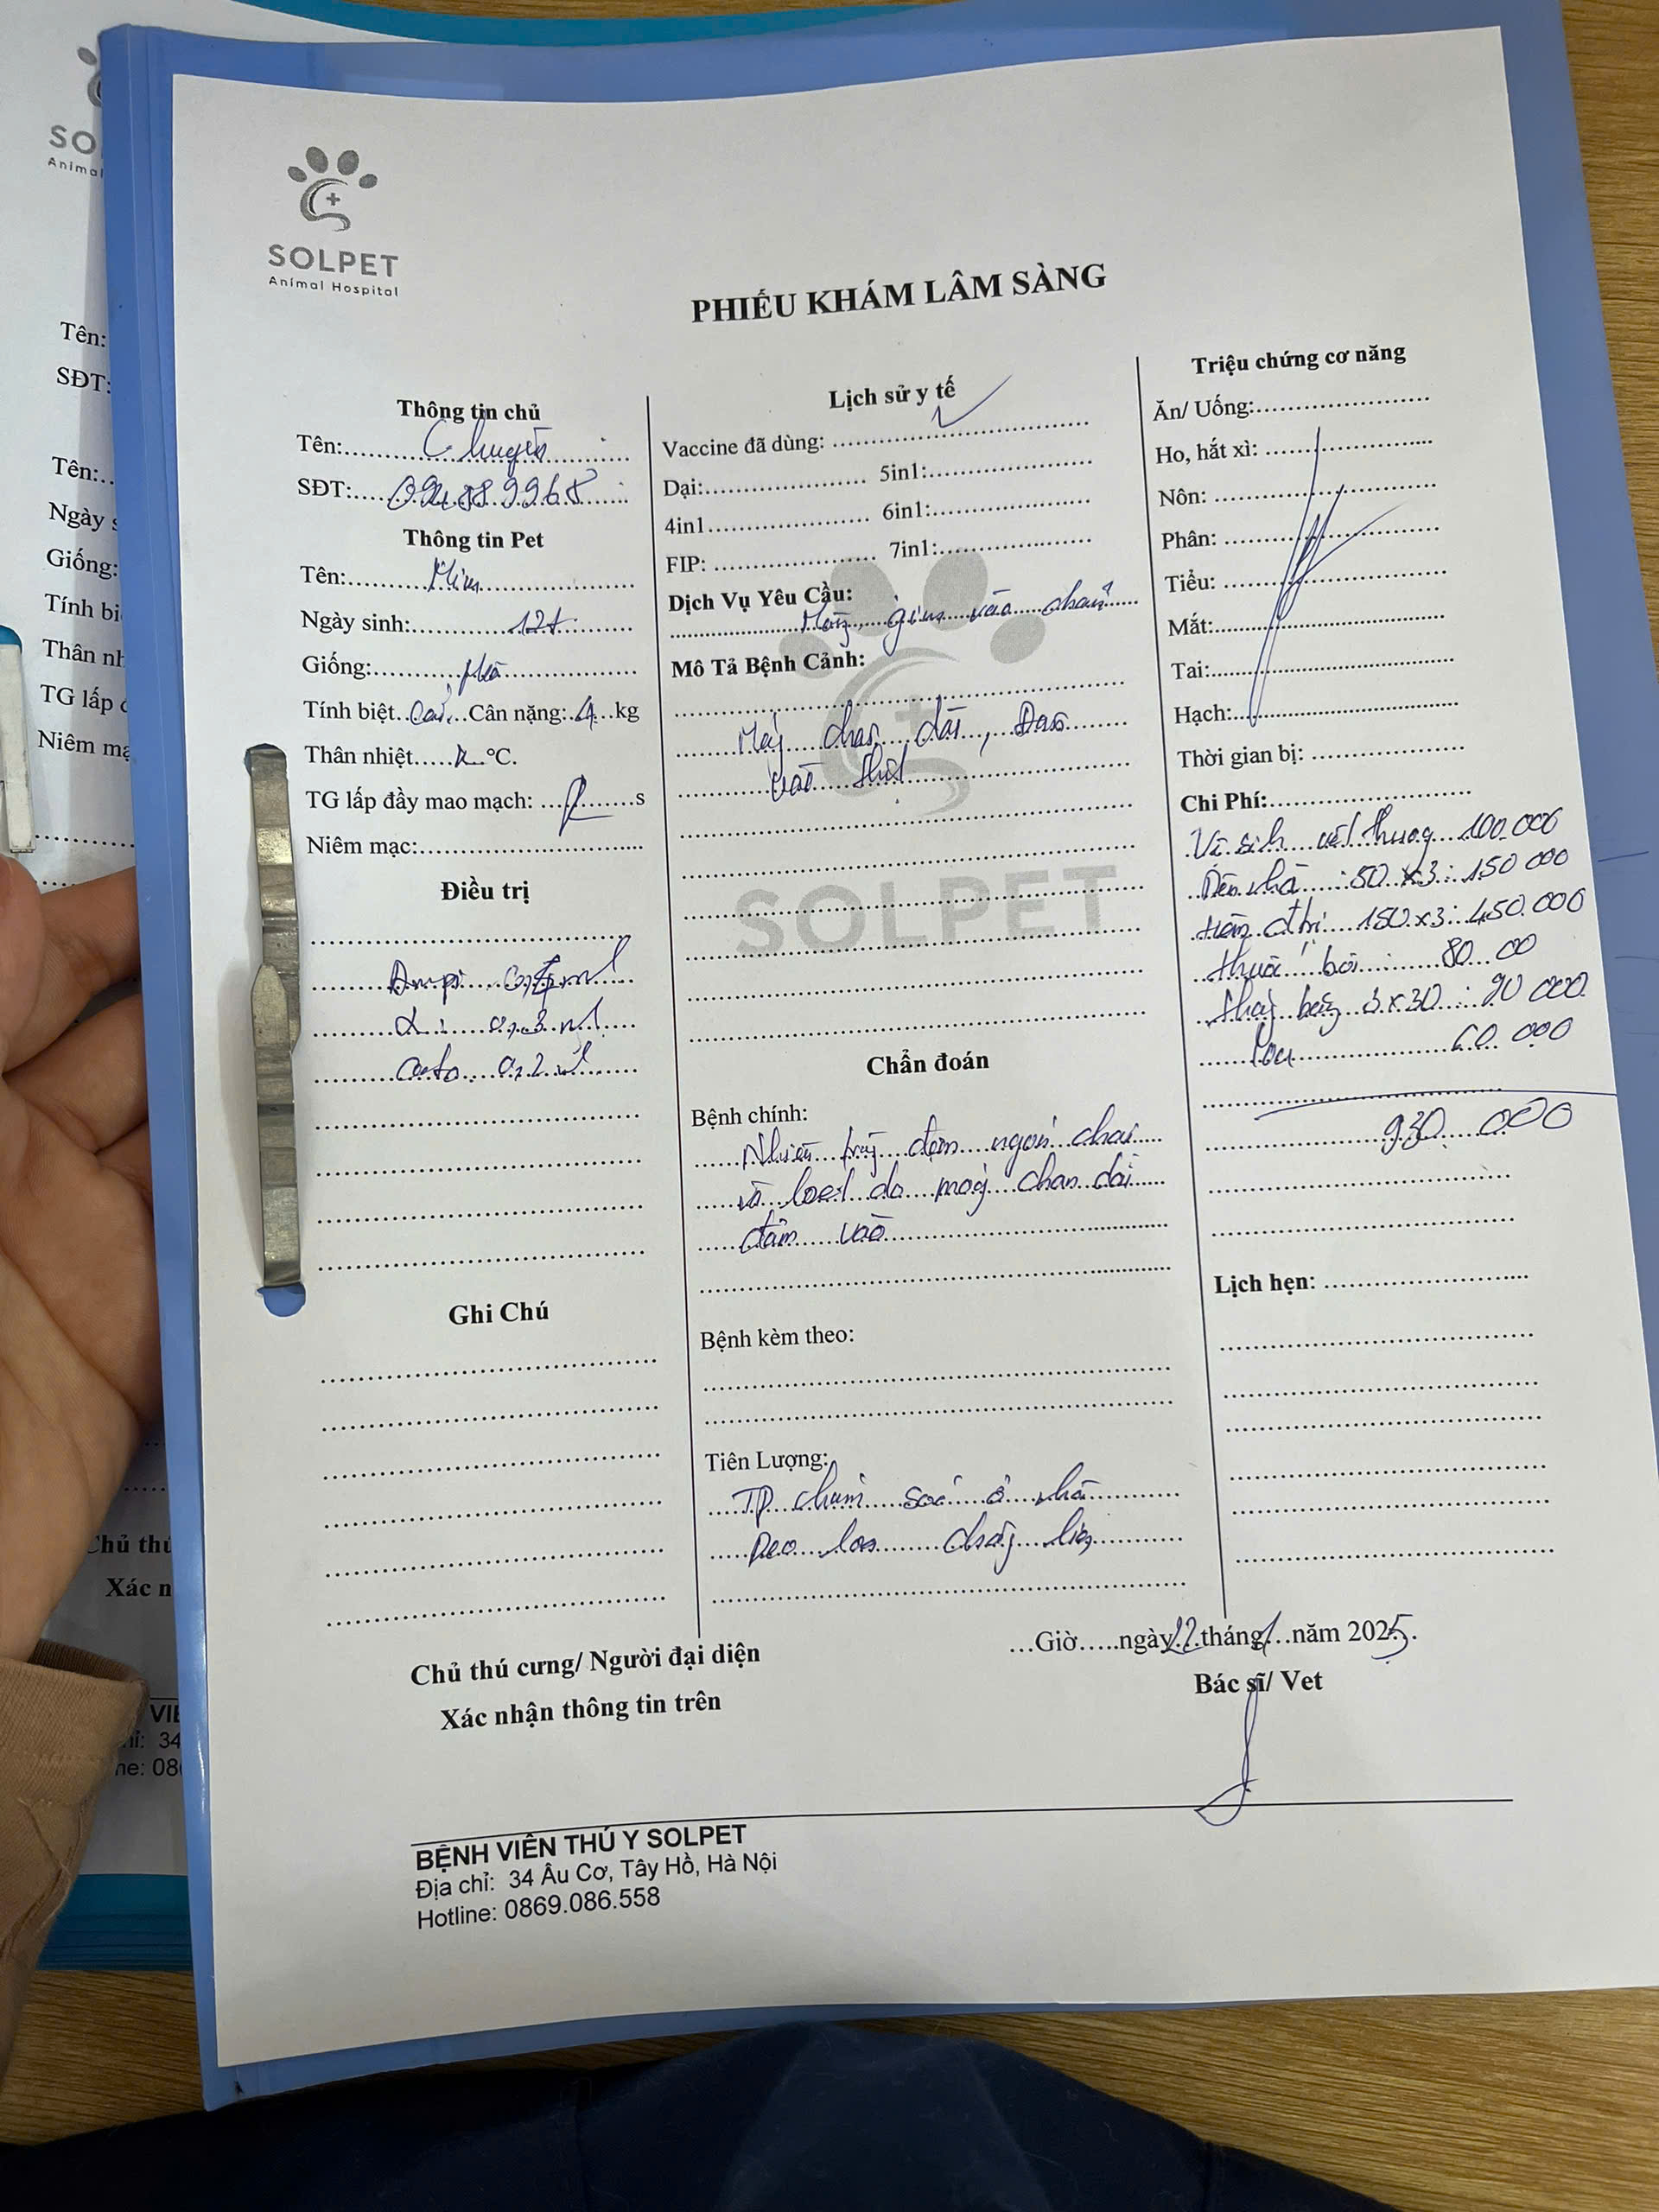 SOLPET
Animal Hospital
PHIẾU KHÁM LÂM SÀNG
Thông tin chủ
Tên: Chuyên
SĐT:
Thông tin Pet
Tên: Mim
Ngày sinh: 12t
Giống:
Tính biệt Cái Cân nặng: 4 kg
Thân nhiệt °C.
TG lấp đầy mao mạch: s
Niêm mạc:
Điều trị
Ampi
0,3 ml
0,2 ml
Ghi Chú
Lịch sử y tế
Vaccine đã dùng:
Dại: 5in1:
4in1 6in1:
FIP: 7in1:
Dịch Vụ Yêu Cầu:
Móng găm vào chân
Mô Tả Bệnh Cảnh:
Móng chân dài, đâm
vào thịt
SOLPET
Chẩn đoán
Bệnh chính:
Nhiễm trùng đệm ngón chân
và loét do móng chân dài
đâm vào
Bệnh kèm theo:
Tiên Lượng:
TD chăm sóc ở nhà
Đeo loa chống liếm
Triệu chứng cơ năng
Ăn/ Uống:
Ho, hắt xì:
Nôn:
Phân:
Tiểu:
Mắt:
Tai:
Hạch:
Thời gian bị:
Chi Phí:
Vệ sinh vết thương 100.000
Đến nhà : 50 x 3 : 150 000
tiêm đtrị 150 x 3 : 450.000
thuốc bôi : 80 00
thay băng 3 x 30 : 90 000
Loa 60 000
930 000
Lịch hẹn:
Giờ ngày 22 tháng 1 năm 2025.
Chủ thú cưng/ Người đại diện
Xác nhận thông tin trên
Bác sĩ/ Vet
BỆNH VIỆN THÚ Y SOLPET
Địa chỉ: 34 Âu Cơ, Tây Hồ, Hà Nội
Hotline: 0869.086.558